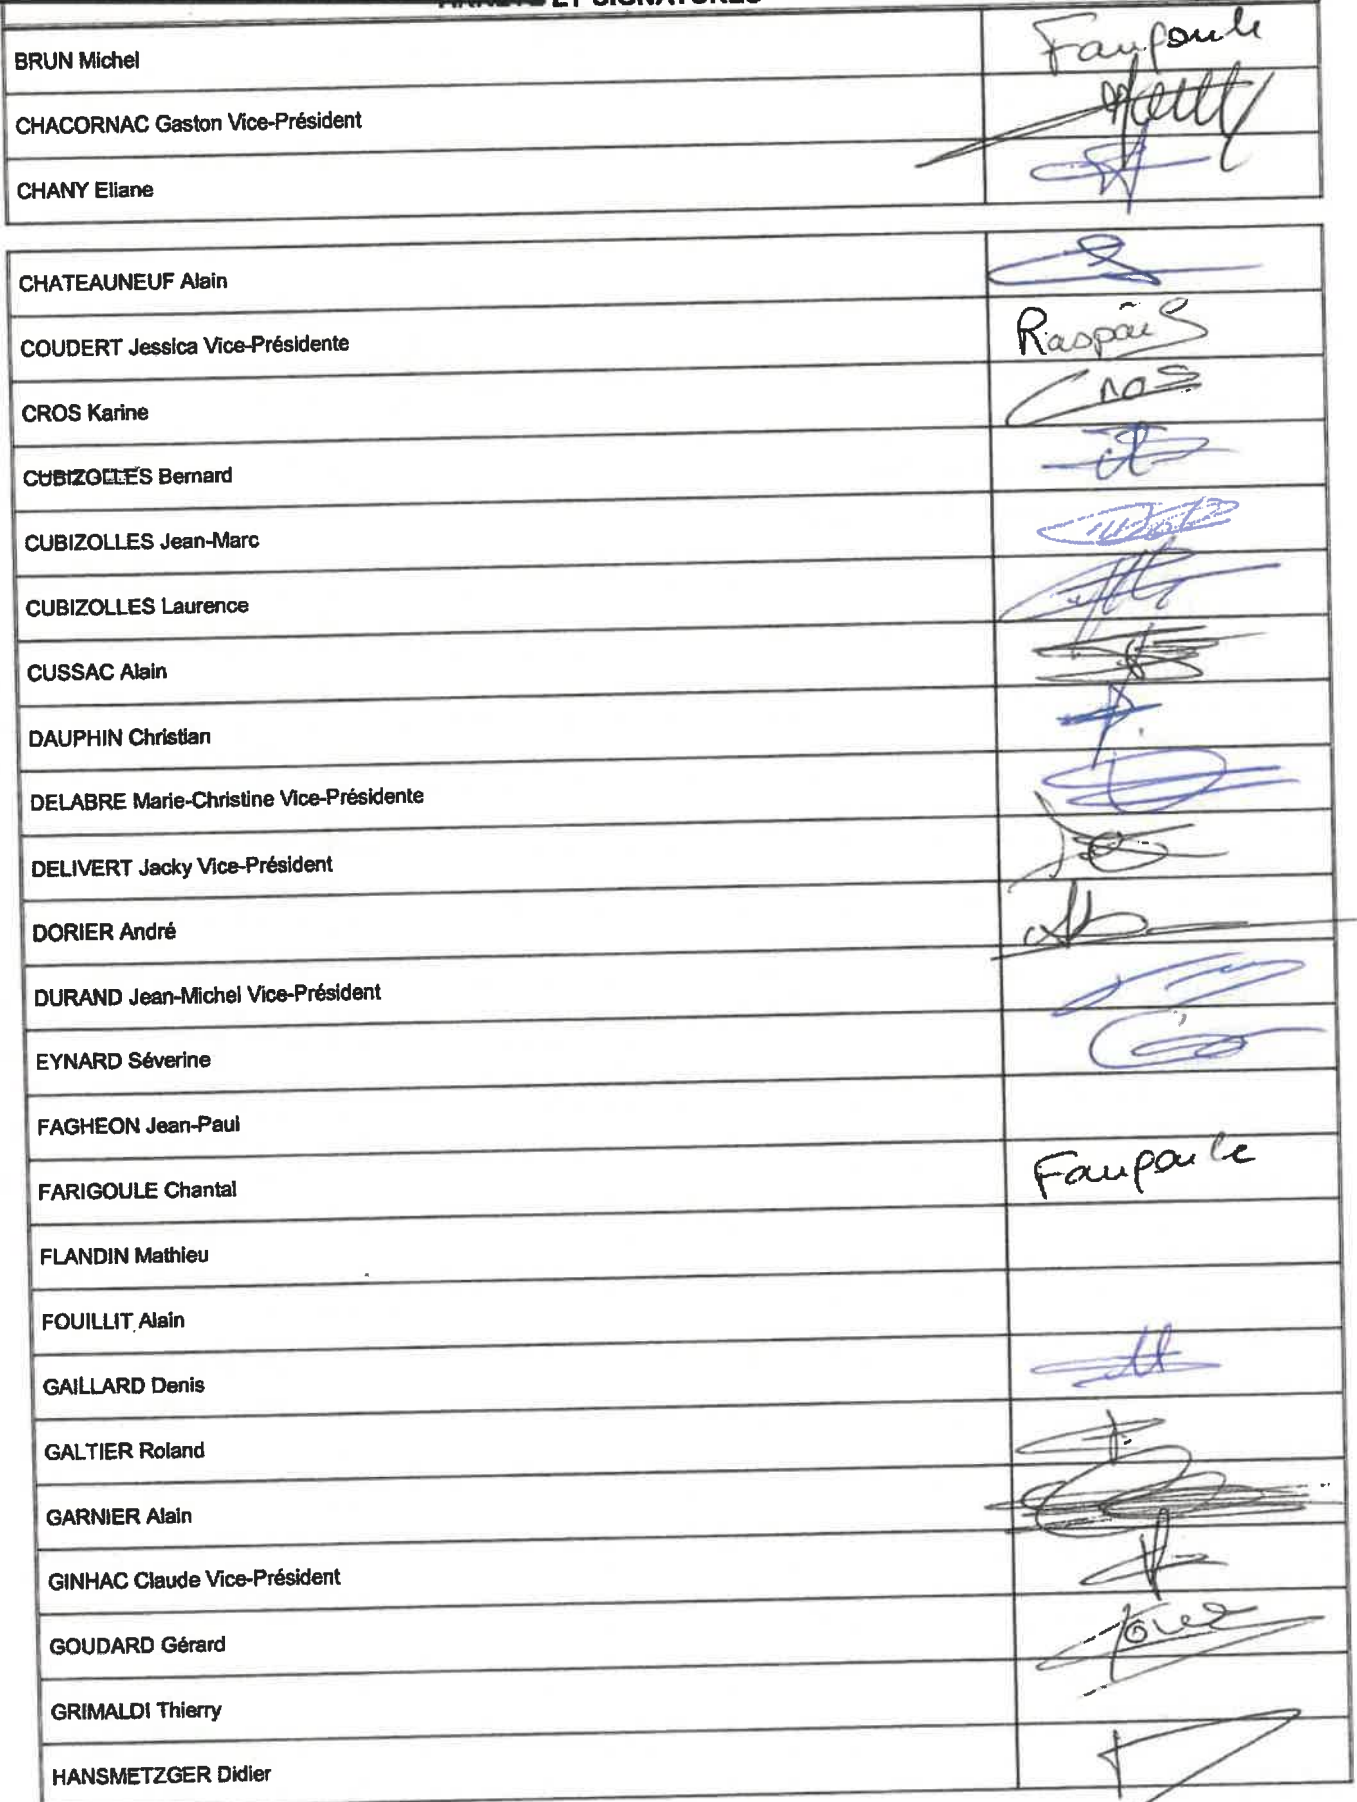 ET SIGNATURES
BRUN Michel
CHACORNAC Gaston Vice-Président
CHANY Eliane
CHATEAUNEUF Alain
COUDERT Jessica Vice-Présidente
CROS Karine Cros
CUBIZOLLES Bernard
CUBIZOLLES Jean-Marc
CUBIZOLLES Laurence
CUSSAC Alain
DAUPHIN Christian
DELABRE Marie-Christine Vice-Présidente
DELIVERT Jacky Vice-Président
DORIER André
DURAND Jean-Michel Vice-Président
EYNARD Séverine
FAGHEON Jean-Paul
FARIGOULE Chantal
FLANDIN Mathieu
FOUILLIT Alain
GAILLARD Denis
GALTIER Roland
GARNIER Alain
GINHAC Claude Vice-Président
GOUDARD Gérard
GRIMALDI Thierry
HANSMETZGER Didier